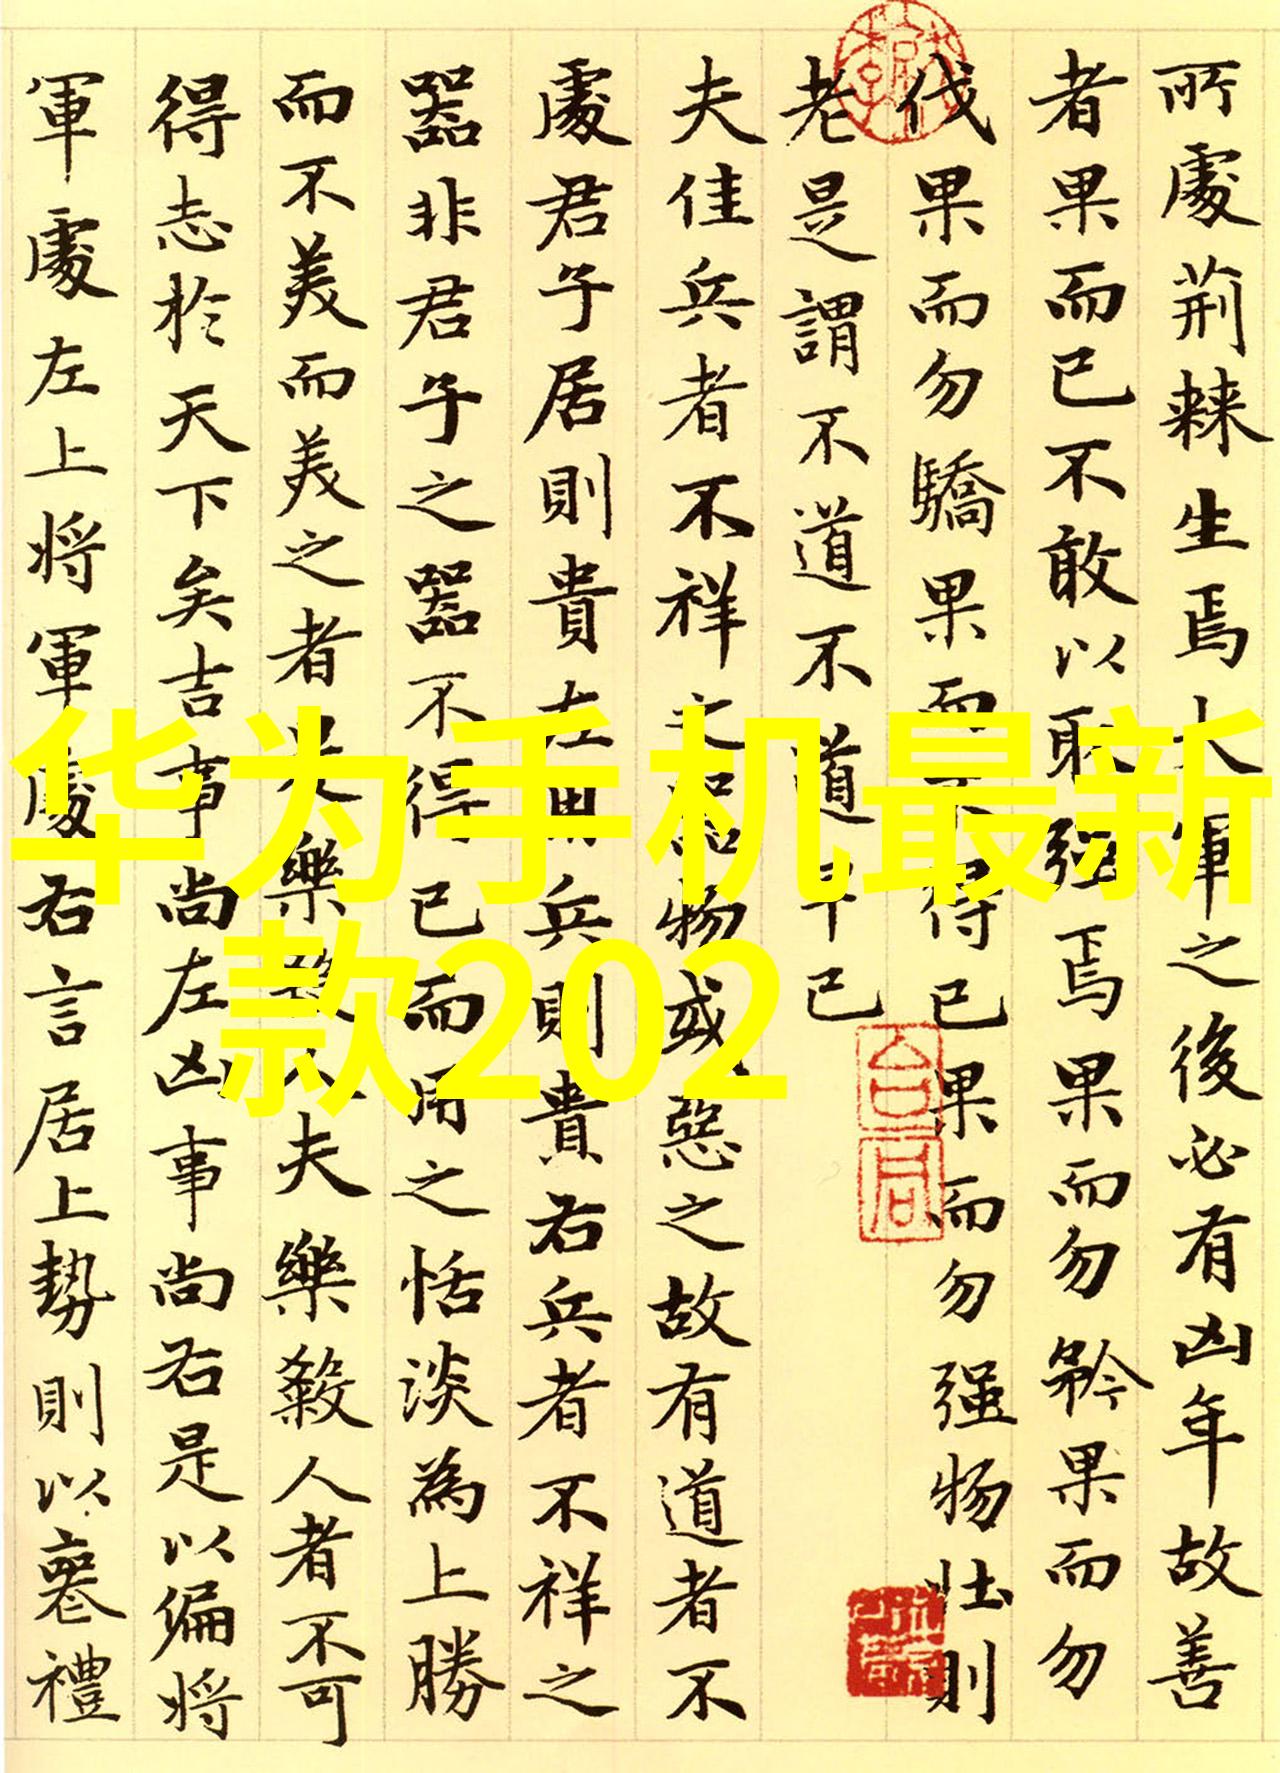 所處荊棘生焉大軍之後必有凶年故善
者果而已不敢以取強焉果而勿矜果而勿
伐果而勿驕果而不得已果而勿强物壮則
老是謂不道不道早已
夫佳兵者不祥之器物或惡之故有道者不
處君子居則貴左用兵則貴右兵者不祥之
器非君子之器不得已而用之恬淡為上勝
而不美而美之者是樂殺人夫樂殺人者不可
得志於天下矣吉事尚左凶事尚右是以偏將
軍處左上將軍處右言居上勢則以喪禮
华为手机最新
款202